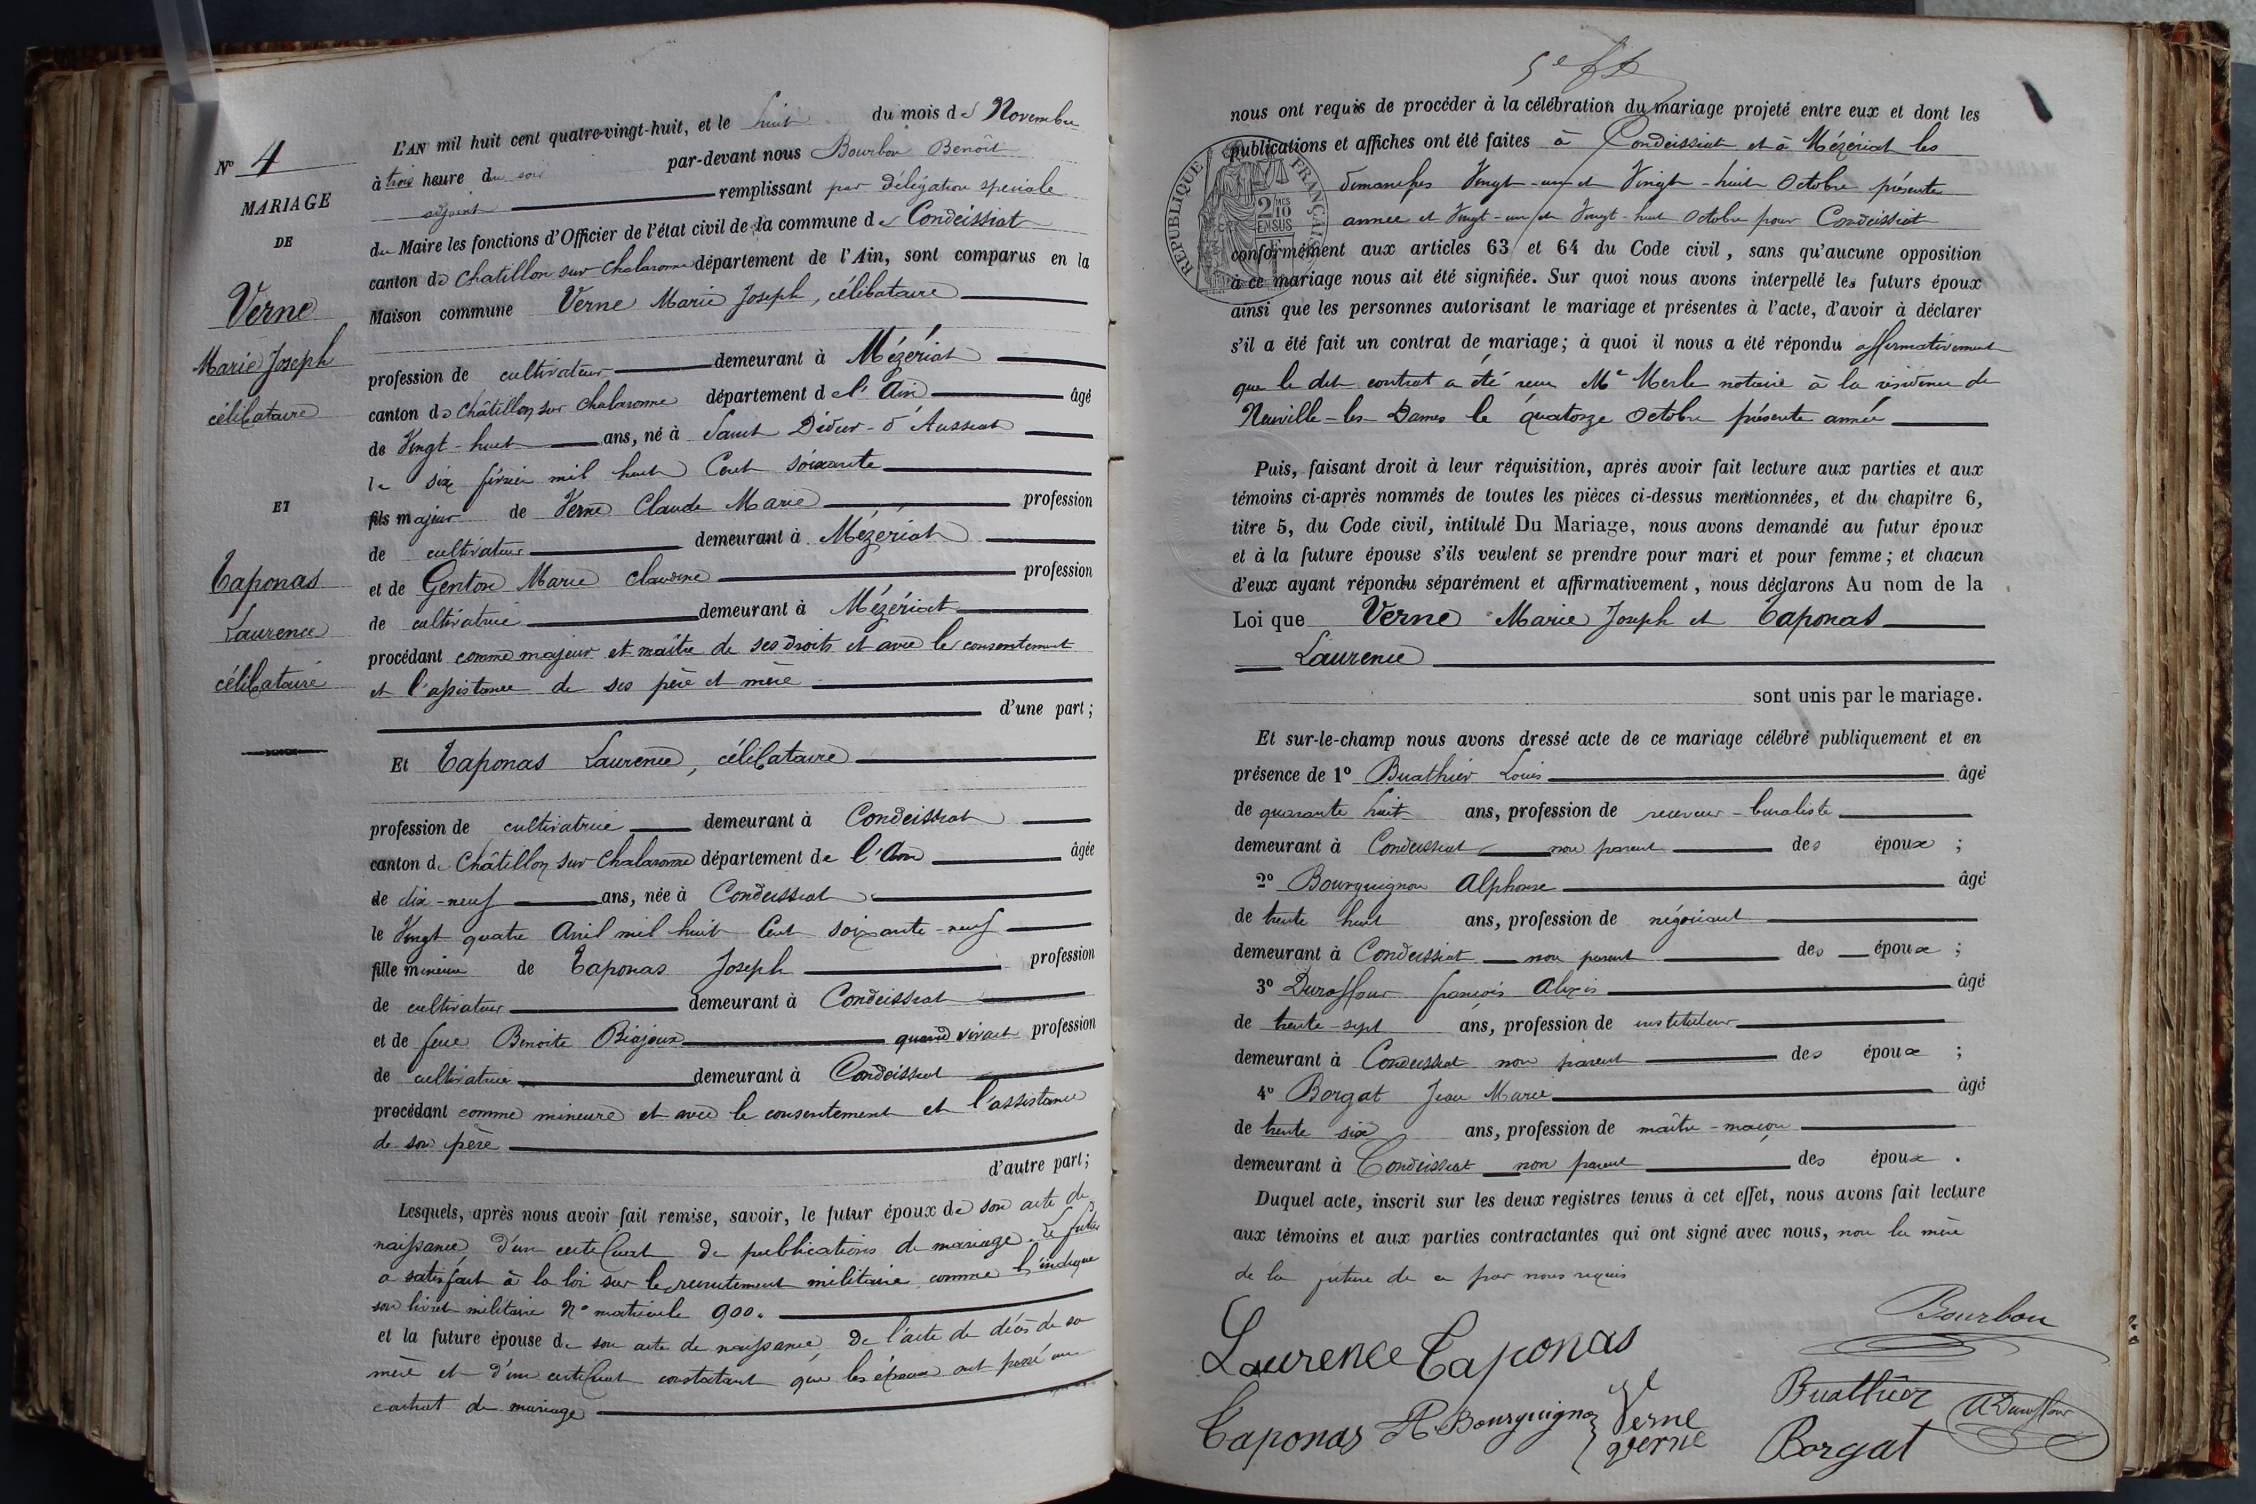 N° 4
MARIAGE
DE
Verne
Marie Joseph
célibataire
ET
Taponas
Laurence
célibataire
L'AN mil huit cent quatre-vingt-huit, et le huit du mois de Novembre
à trois heure du soir par-devant nous Bourbon Benoît
adjoint remplissant par délégation spéciale
du Maire les fonctions d'Officier de l'état civil de la commune de Condeissiat
canton de Chatillon sur Chalaronne département de l'Ain, sont comparus en la
Maison commune Verne Marie Joseph, célibataire
profession de cultivateur demeurant à Mézériat
canton de Châtillon sur Chalaronne département de l'Ain âgé
de Vingt-huit ans, né à Saint Didier-d'Aussiat
le six février mil huit Cent soixante
fils majeur de Verne Claude Marie profession
de cultivateur demeurant à Mézériat
et de Genton Marie Claudine profession
de cultivatrice demeurant à Mézériat
procédant comme majeur et maître de ses droits et avec le consentement
et l'assistance de ses père et mère
d'une part;
Et Taponas Laurence, célibataire
profession de cultivatrice demeurant à Condeissiat
canton de Châtillon sur Chalaronne département de l'Ain âgée
de dix-neuf ans, née à Condeissiat
le Vingt quatre Avril mil huit Cent soixante-neuf
fille mineure de Taponas Joseph profession
de cultivateur demeurant à Condeissiat
et de feue Benoite Biajoux quand vivait profession
de cultivatrice demeurant à Condeissiat
procédant comme mineure et avec le consentement et l'assistance
de son père
d'autre part;
Lesquels, après nous avoir fait remise, savoir, le futur époux de son acte de
naissance, d'un certificat de publications de mariage. Le futur
a satisfait à la loi sur le recrutement militaire comme l'indique
son livret militaire N° matricule 900.
et la future épouse de son acte de naissance, de l'acte de décès de sa
mère et d'un certificat constatant que les époux ont passé un
contrat de mariage
nous ont requis de procéder à la célébration du mariage projeté entre eux et dont les
publications et affiches ont été faites à Condeissiat et à Mézériat les
dimanches Vingt-un et Vingt-huit Octobre présente
année et Vingt-un et Vingt-huit Octobre pour Condeissiat
RÉPUBLIQUE FRANÇAISE
2/10 EN SUS
conformément aux articles 63 et 64 du Code civil, sans qu'aucune opposition
à ce mariage nous ait été signifiée. Sur quoi nous avons interpellé les futurs époux
ainsi que les personnes autorisant le mariage et présentes à l'acte, d'avoir à déclarer
s'il a été fait un contrat de mariage; à quoi il nous a été répondu affirmativement
que le dit contrat a été reçu Me Merle notaire à la résidence de
Neuville-les-Dames le quatorze Octobre présente année
Puis, faisant droit à leur réquisition, après avoir fait lecture aux parties et aux
témoins ci-après nommés de toutes les pièces ci-dessus mentionnées, et du chapitre 6,
titre 5, du Code civil, intitulé Du Mariage, nous avons demandé au futur époux
et à la future épouse s'ils veulent se prendre pour mari et pour femme; et chacun
d'eux ayant répondu séparément et affirmativement, nous déclarons Au nom de la
Loi que Verne Marie Joseph et Taponas
Laurence
sont unis par le mariage.
Et sur-le-champ nous avons dressé acte de ce mariage célébré publiquement et en
présence de 1° Buathier Louis âgé
de quarante huit ans, profession de receveur-buraliste
demeurant à Condeissiat non parent des époux ;
2° Bourguignon Alphonse âgé
de trente huit ans, profession de négociant
demeurant à Condeissiat non parent des époux ;
3° Duraffour françois Alexis âgé
de trente-sept ans, profession de instituteur
demeurant à Condeissiat non parent des époux ;
4° Borgat Jean Marie âgé
de trente six ans, profession de maître-maçon
demeurant à Condeissiat non parent des époux .
Duquel acte, inscrit sur les deux registres tenus à cet effet, nous avons fait lecture
aux témoins et aux parties contractantes qui ont signé avec nous, non la mère
de la future de ce par nous requis
Bourbon
Laurence Taponas
Buathier
Taponas A. Bourguignon Verne
Verne
Borgat
A Duraffour